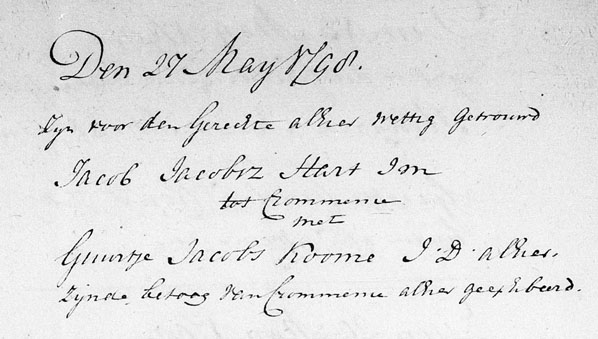 Den 27 May 1798.
Zijn voor den Gerechte alhier wettig Getrouwd
Jacob Jacobsz Hart J m
tot Crommenie
met
Guurtje Jacobs Koome J: D: alhier.
zijnde betoog van Crommenie alhier geexhibeerd.